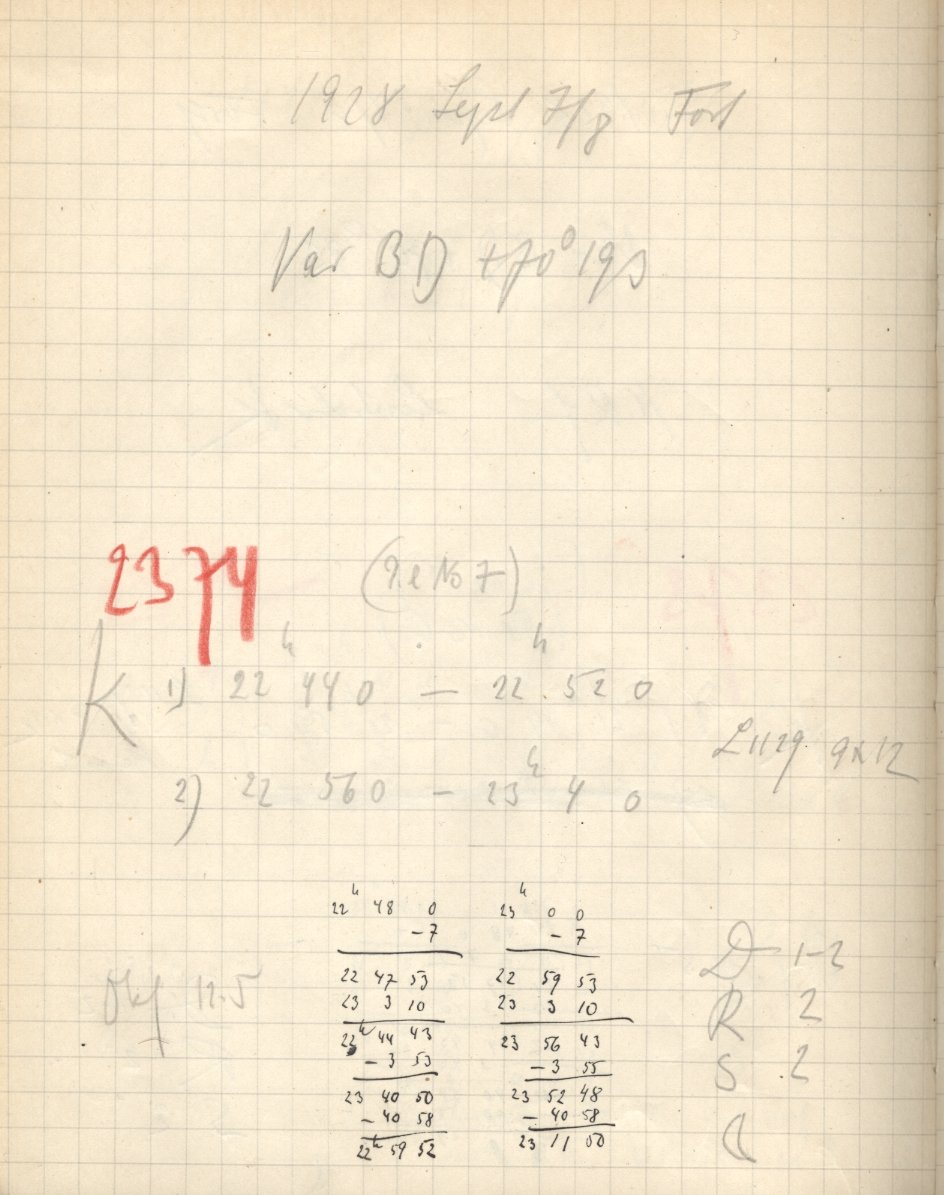 1928 Sept 7/8 Fort
Var BD +70° 193
2374 (Pl No 7)
K. 1) 22ʰ 44 0 — 22ʰ 52 0
L 1129 9x12
2) 22 56 0 — 23ʰ 4 0
22ʰ 48 0
-7
22 47 53
23 3 10
44 43
-3 53
23 40 50
-40 58
22ʰ 59 52
23ʰ 0 0
-7
22 59 53
23 3 10
23 56 43
-3 55
23 52 48
-40 58
23 11 50
12.5
D 1-2
R 2
S 2